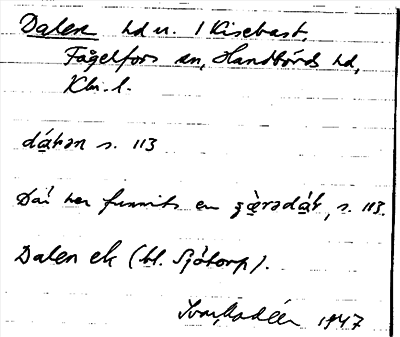 Dalen hd u. / Kisebast,
Fågelfors sn, Handbörds hd,
Klm. l.
dáƚən s. 113
Där har funnits en s. 113.
Dalen ek (bl. Sjötorp).
Ivar Modéer 1947